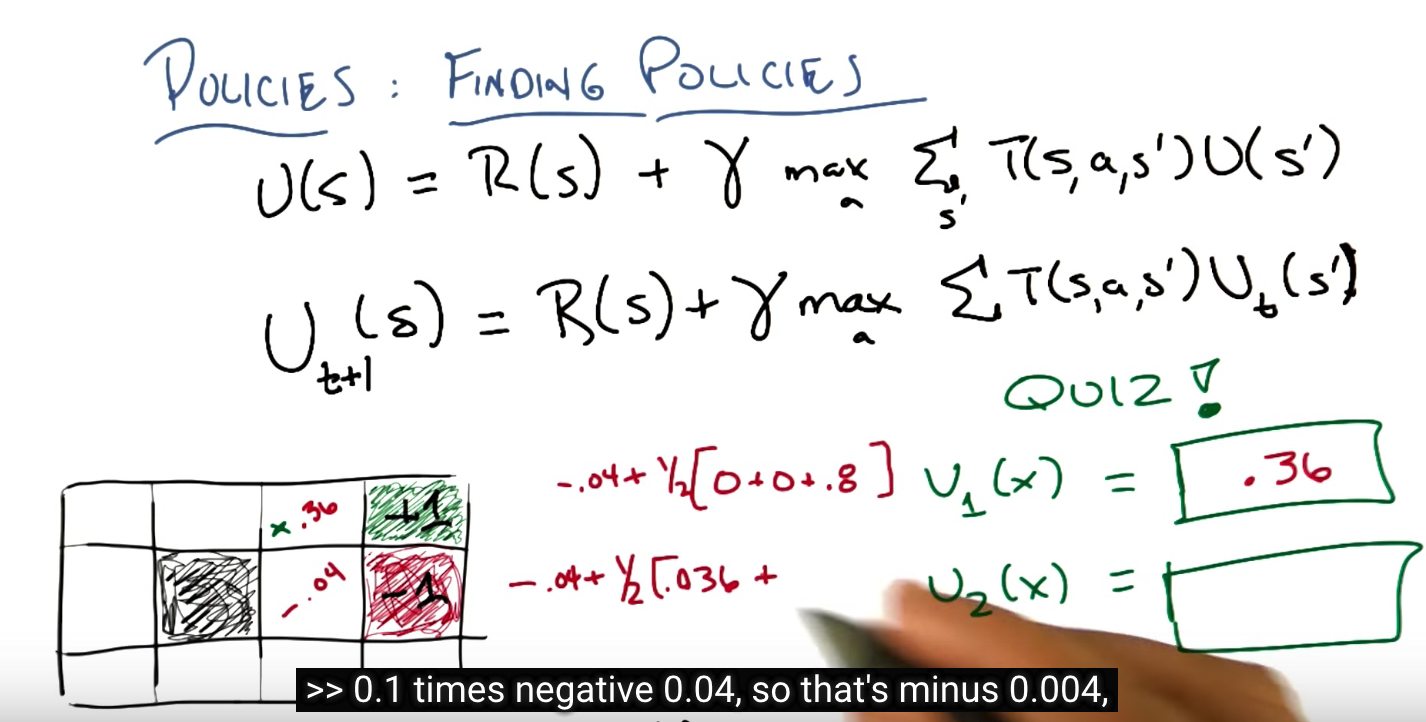 POLICIES : FINDING POLICIES
U(s) = R(s) + γ max_a Σ_s' T(s,a,s')U(s')
U_t+1(s) = R(s) + γ max_a Σ T(s,a,s')U_t(s')
QUIZ!
-.04+ ½[0+0+.8] U_1(x) = .36
x .36 +1
-.04 -1
-.04+ ½[.036 + U_2(x) =
>> 0.1 times negative 0.04, so that's minus 0.004,